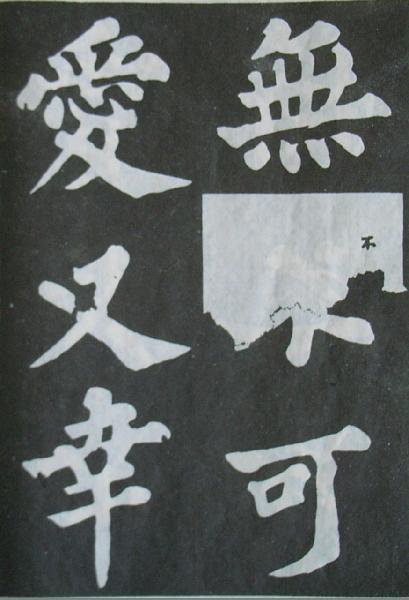 無不可
愛又幸